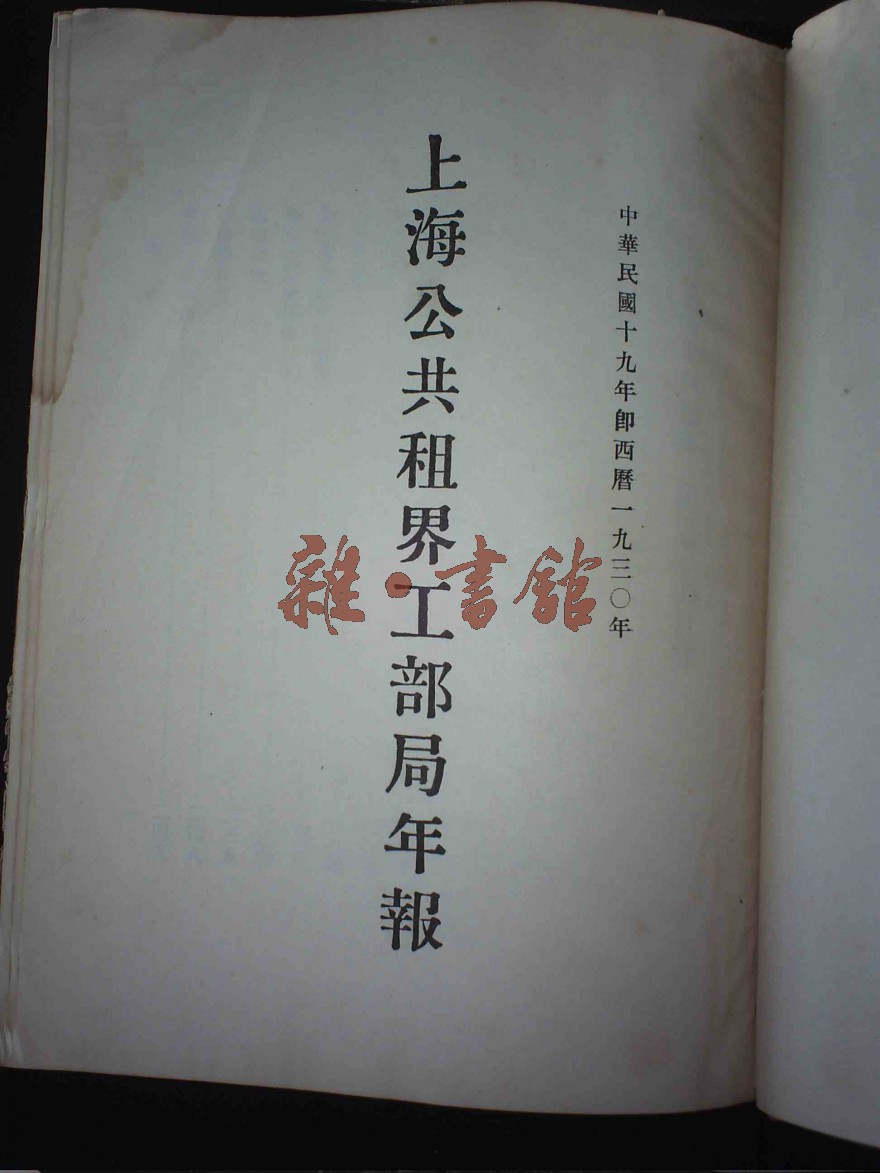 中華民國十九年卽西曆一九三〇年
上海公共租界工部局年報
雜·書館